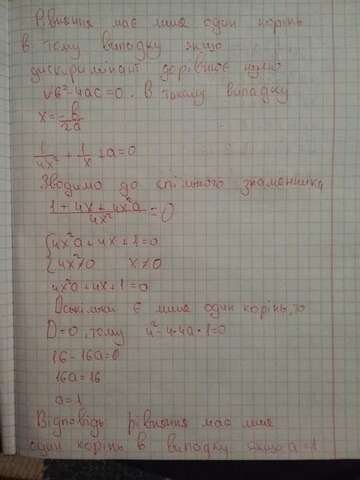 Рівняння має лише один корінь
в тому випадку якщо
дискримінант дорівнює нулю
√б²-4ac=0. В такому випадку
x=-b/2a
1/4x² + 1/x + a=0
Зводимо до спільного знаменника
1+4x+4x²a/4x²=0
{4x²a+4x+1=0
{4x²≠0 x≠0
4x²a+4x+1=0
Оскільки є лише один корінь, то
D=0, тому 4²-4·4a·1=0
16-16a=0
16a=16
a=1
Відповідь рівняння має лише
один корінь в випадку якщо a=1